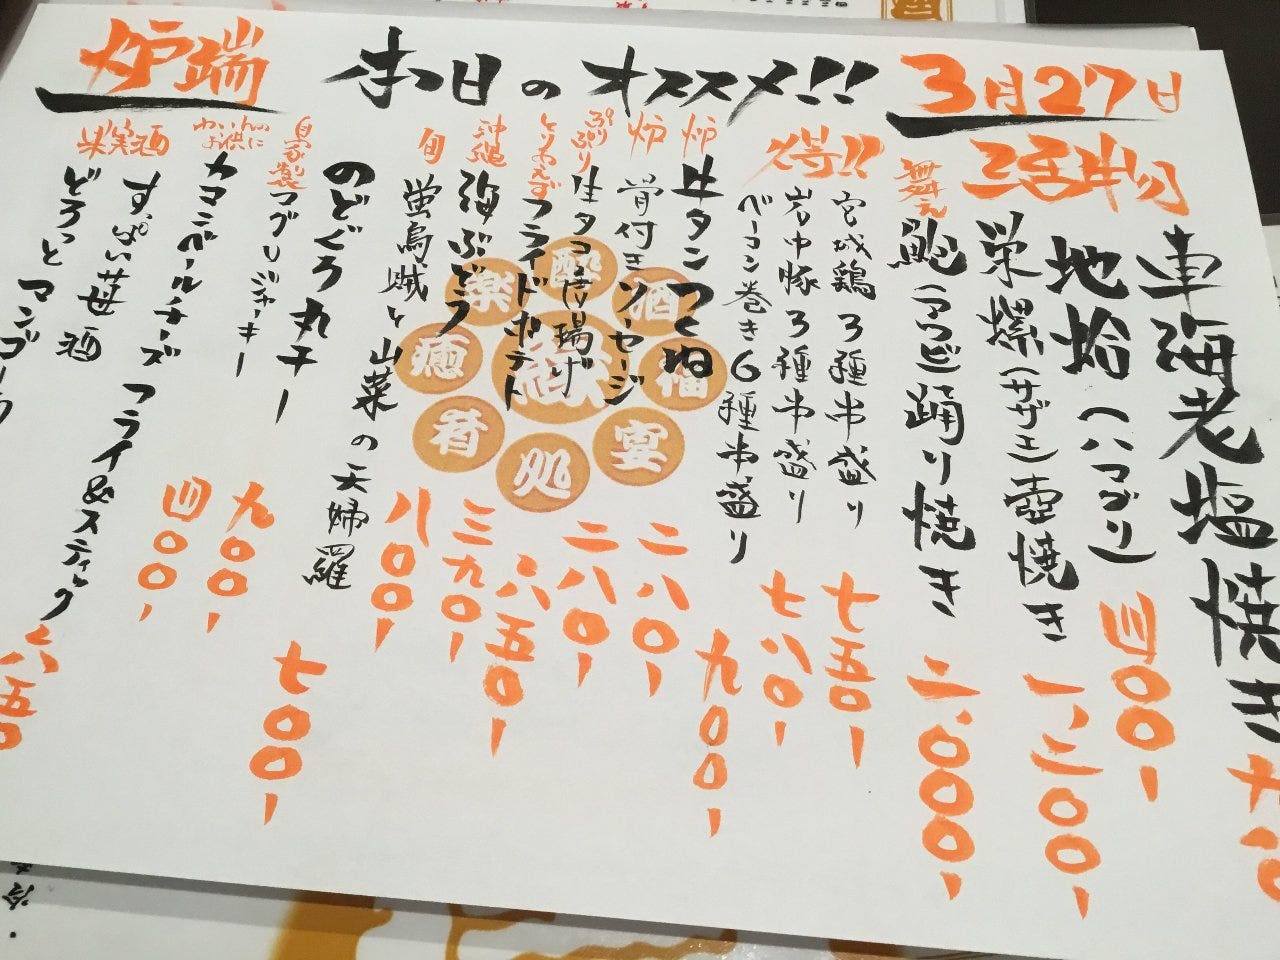 炉端
本日のオススメ!!
3月27日
三活判
車海老塩焼き
地蛤(ハマグリ) 四〇〇-
栄螺(サザエ)壺焼き 一、二〇〇-
鮑(アワビ)踊り焼き 二、〇〇〇-
得!!
宮城鶏3種串盛り 七五〇-
岩中豚3種串盛り 七八〇-
ベーコン巻き6種串盛り 九〇〇-
炉 牛タンつくね 二八〇-
炉 骨付きソーセージ 二八〇-
ぷりぷり 生タコ唐揚げ 六五〇-
とりあえず フライドポテト 三九〇-
沖縄 海ぶどう
旬 蛍烏賊と山菜の天婦羅 八〇〇-
のどぐろ丸干し 七〇〇-
自家製 マグロジャーキー 九〇〇-
わいんのお供に カマンベールチーズフライ&スティック
四〇〇-
果実酒
すっぱい苺酒
どろっとマンゴー
六五〇
酔
酒
福
宴
処
肴
癒
楽